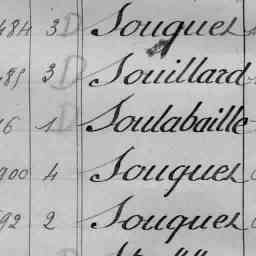 484 3 D Souques
485 3 D Souillard
6 1 D Soulabaille
900 4 Souques
92 2 Souques